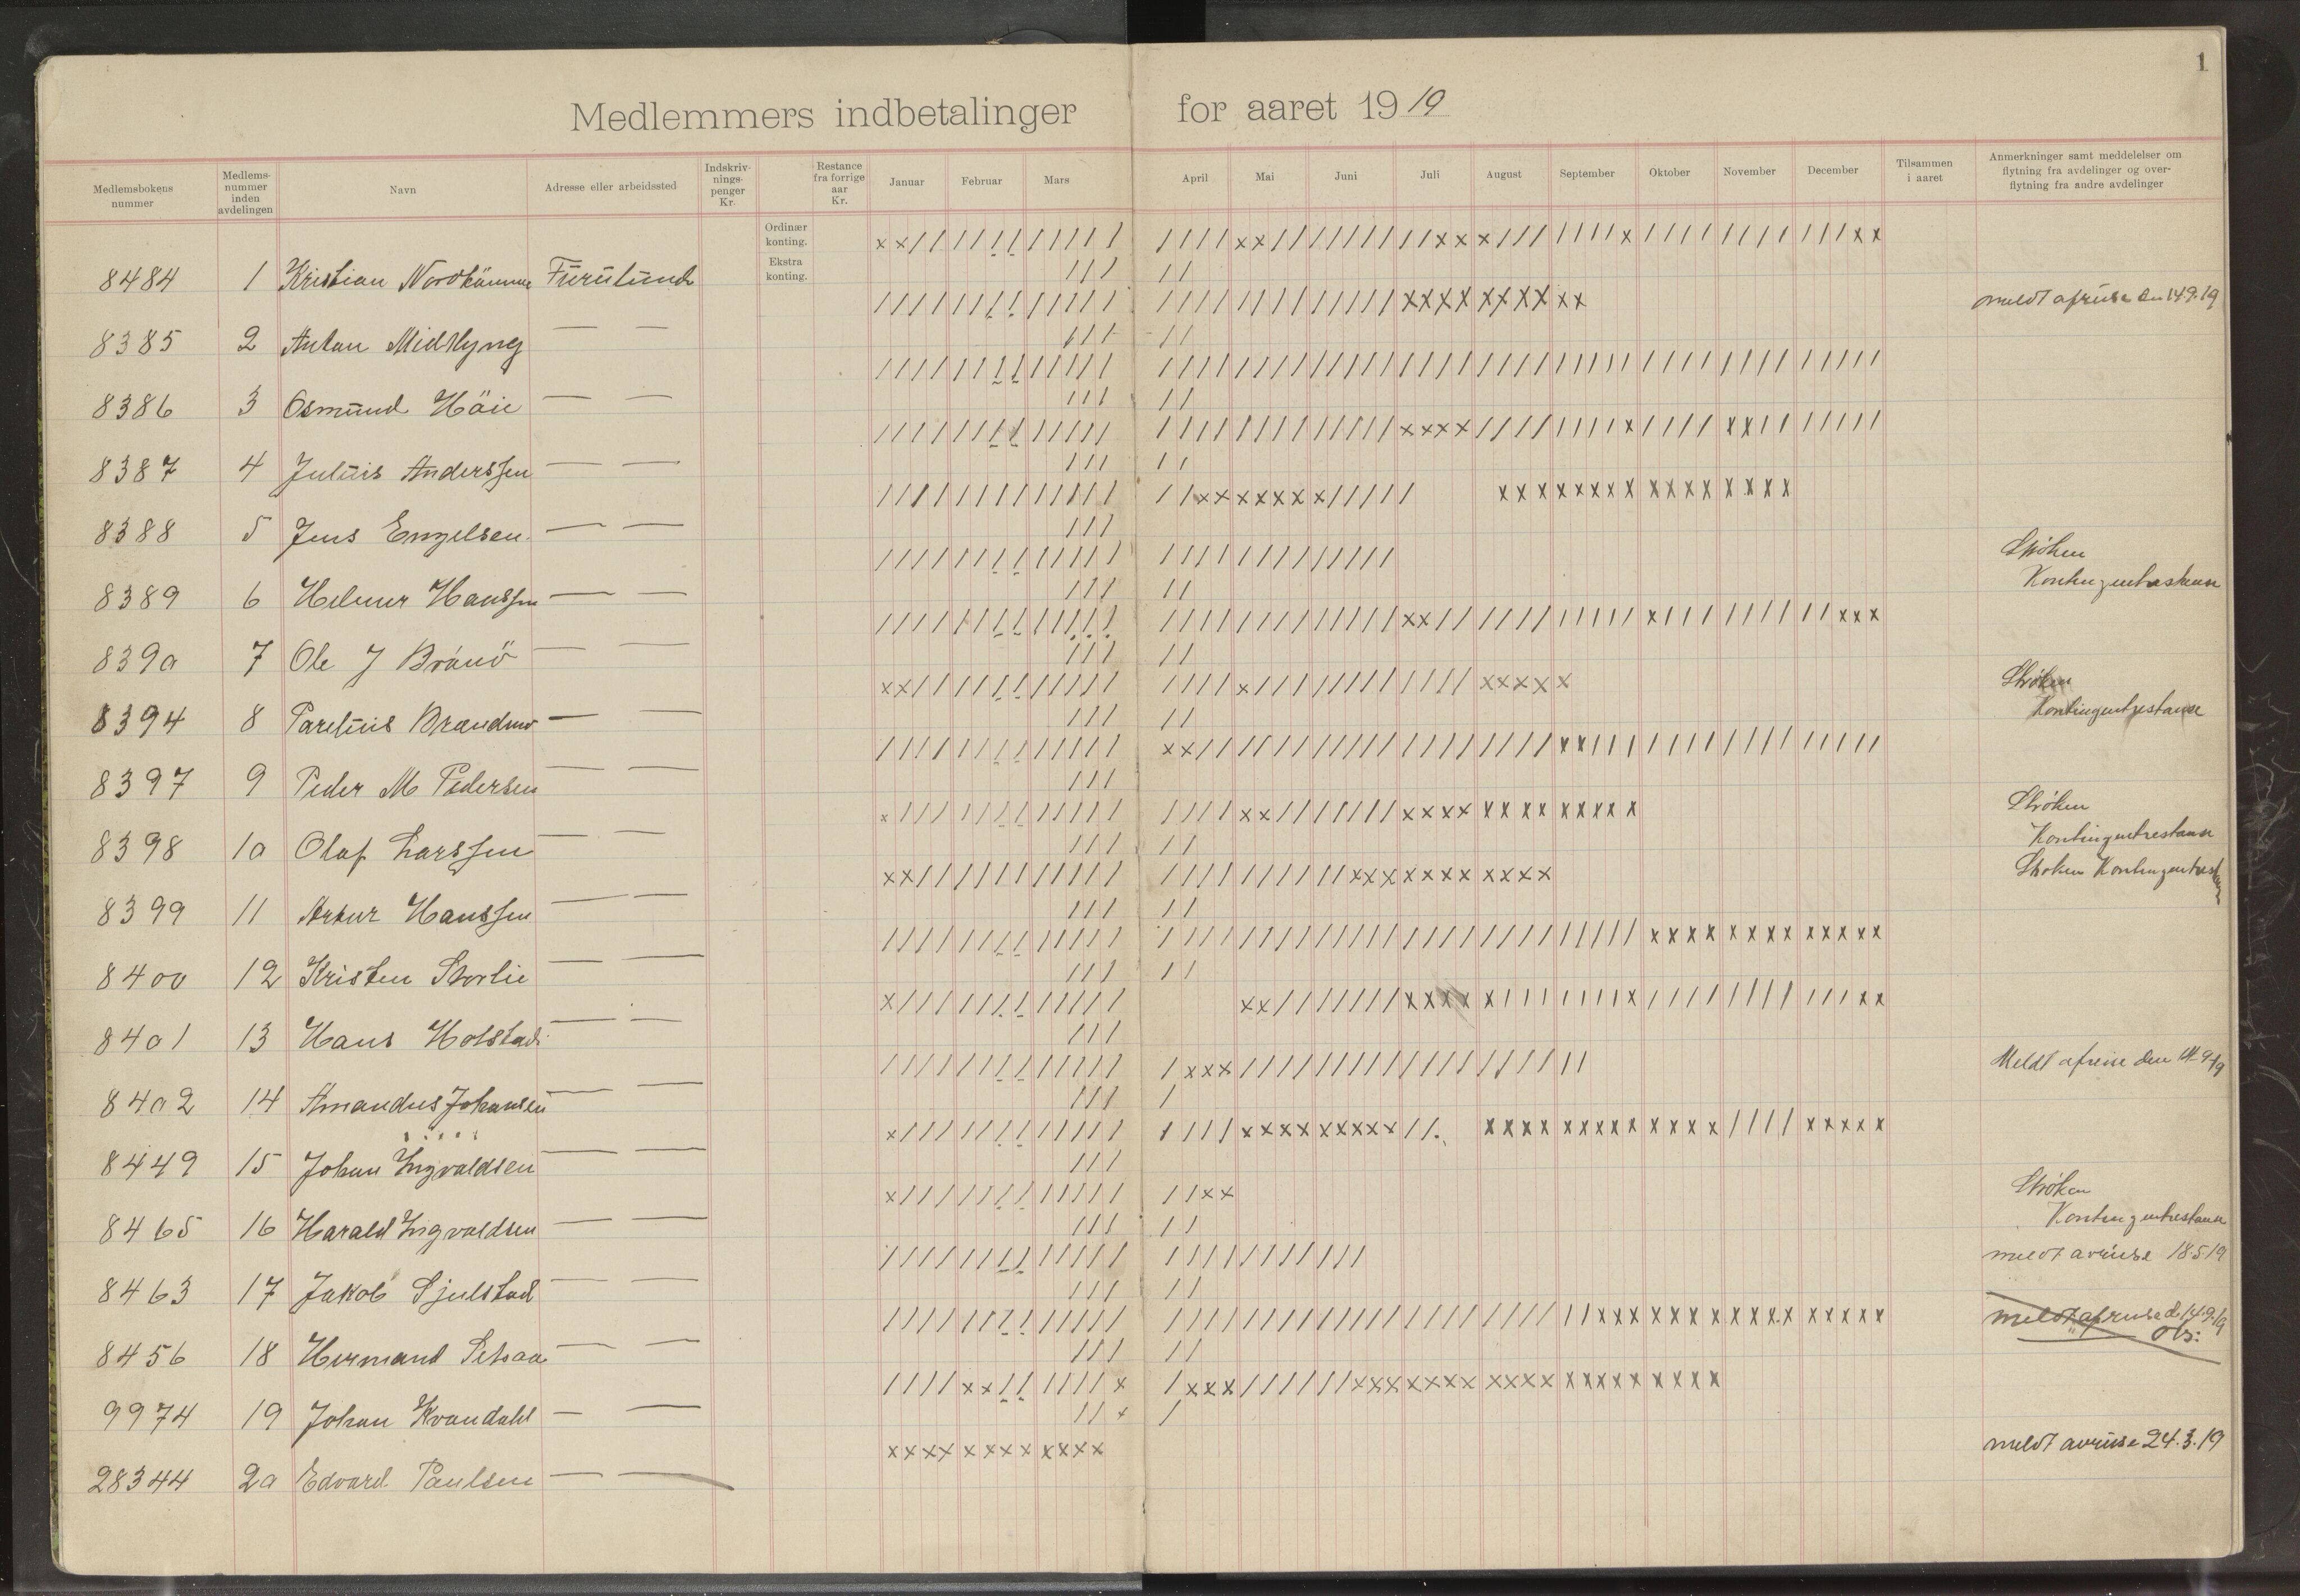 1
Medlemmers indbetalinger for aaret 1919
Medlemsbokens nummer
Medlems-nummer inden avdelingen
Navn
Adresse eller arbeidssted
Indskriv-nings-penger Kr.
Restance fra forrige aar Kr.
Januar Februar Mars April Mai Juni Juli August September Oktober November December
Tilsammen i aaret
Anmerkninger samt meddelelser om flytning fra avdelinger og over-flytning fra andre avdelinger
Ordinær konting.
x x / / / / / / / / / / / / / / / x x / / / / / / / / / / x x x x / / / / / / / x / / / / / / / / / / / x x
Ekstra konting.
8484 1 Kristian Furulund
meldt afreise den 14.9.19
8385 2 Anton Midtlyng — —
8386 3 Osmund Höie — —
8387 4 Julius Anderssen — —
8388 5 Jens Engelsen — —
Strøken
Kontingentrestanse
8389 6 Helmer Hanssen — —
8390 7 Ole J Brånö — —
Strøken
Kontingentrestanse
8394 8 Parelius Brændmo — —
8397 9 Peder M Pedersen — —
Strøken
Kontingentrestanse
8398 10 Olaf Larssen — —
Strøken Kontingentrestanse
8399 11 Artur Hanssen — —
8400 12 Kristen Storlie — —
8401 13 Hans Holstad — —
Meldt afreise den 14-9-19
8402 14 Amandus Johansen — —
8449 15 Johan Ingvaldsen — —
Strøken
Kontingentrestanse
8465 16 Harald Ingvaldsen — —
meldt avreise 18.5.19
8463 17 Jakob Sjulstad — —
meldt afreise d. 14.9.19
obs:
8456 18 Hermand — —
9974 19 Johan Kvandahl — —
meldt avreise 24.3.19
28344 20 Edvard Paulsen — —